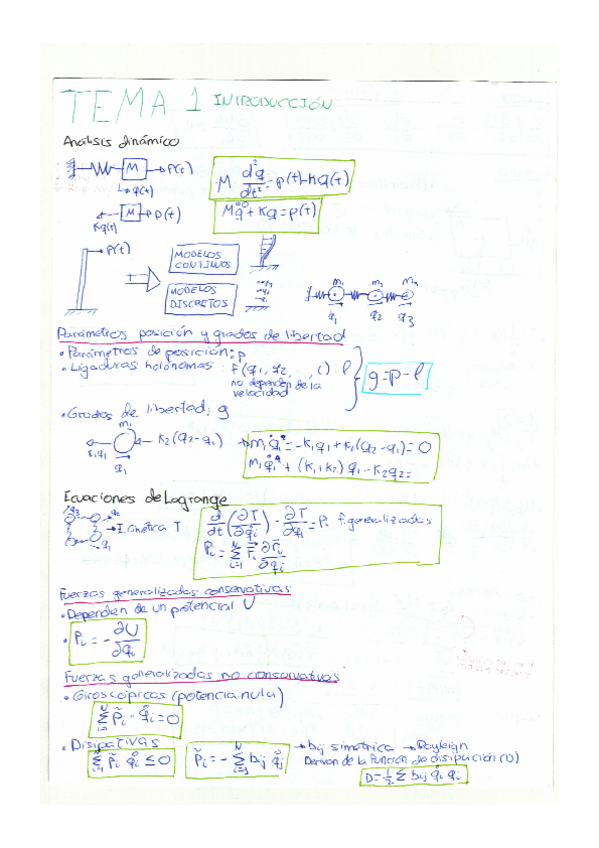 TEMA 1 INTRODUCCIÓN
Análisis dinámico
M → P(t)
q(t)
M d²q/dt² = p(t) - Kq(t)
Kq(t) M p(t)
Mq̈ + Kq = p(t)
P(t)
MODELOS CONTINUOS
MODELOS DISCRETOS
m₁ m₂ m₃
q₁ q₂ q₃
Parámetros posición y grados de libertad
• Parámetros de posición: p
• Ligaduras holónomas: f(q₁, q₂, , t): l
no dependen de la velocidad
g = p - l
• Grados de libertad: g
m₁
K₁q₁ K₂(q₂-q₁)
q₁
m₁q̈₁ = -K₁q₁ + K₂(q₂-q₁) = 0
m₁q̈₁ + (K₁+K₂)q₁ - K₂q₂ =
Ecuaciones de Lagrange
q₃ q₂
q₁
cinética T
d/dt (∂T/∂q̇ᵢ) - ∂T/∂qᵢ = Pᵢ f. generalizadas
Pᵢ = Σ F⃗ᵢ ∂r⃗ᵢ/∂qᵢ
Fuerzas generalizadas conservativas
• Dependen de un potencial U
• Pᵢ = - ∂U/∂qᵢ
Fuerzas generalizadas no conservativas
• Giroscópicas (potencia nula)
Σ P̃ᵢ · q̇ᵢ = 0
• Disipativas
Σ P̃ᵢ q̇ᵢ ≤ 0
P̃ᵢ = - Σ bᵢⱼ q̇ⱼ
→ bᵢⱼ simétrica → Rayleigh
Derivan de la función de disipación (D)
D = ½ Σ bᵢⱼ q̇ᵢ q̇ᵢ